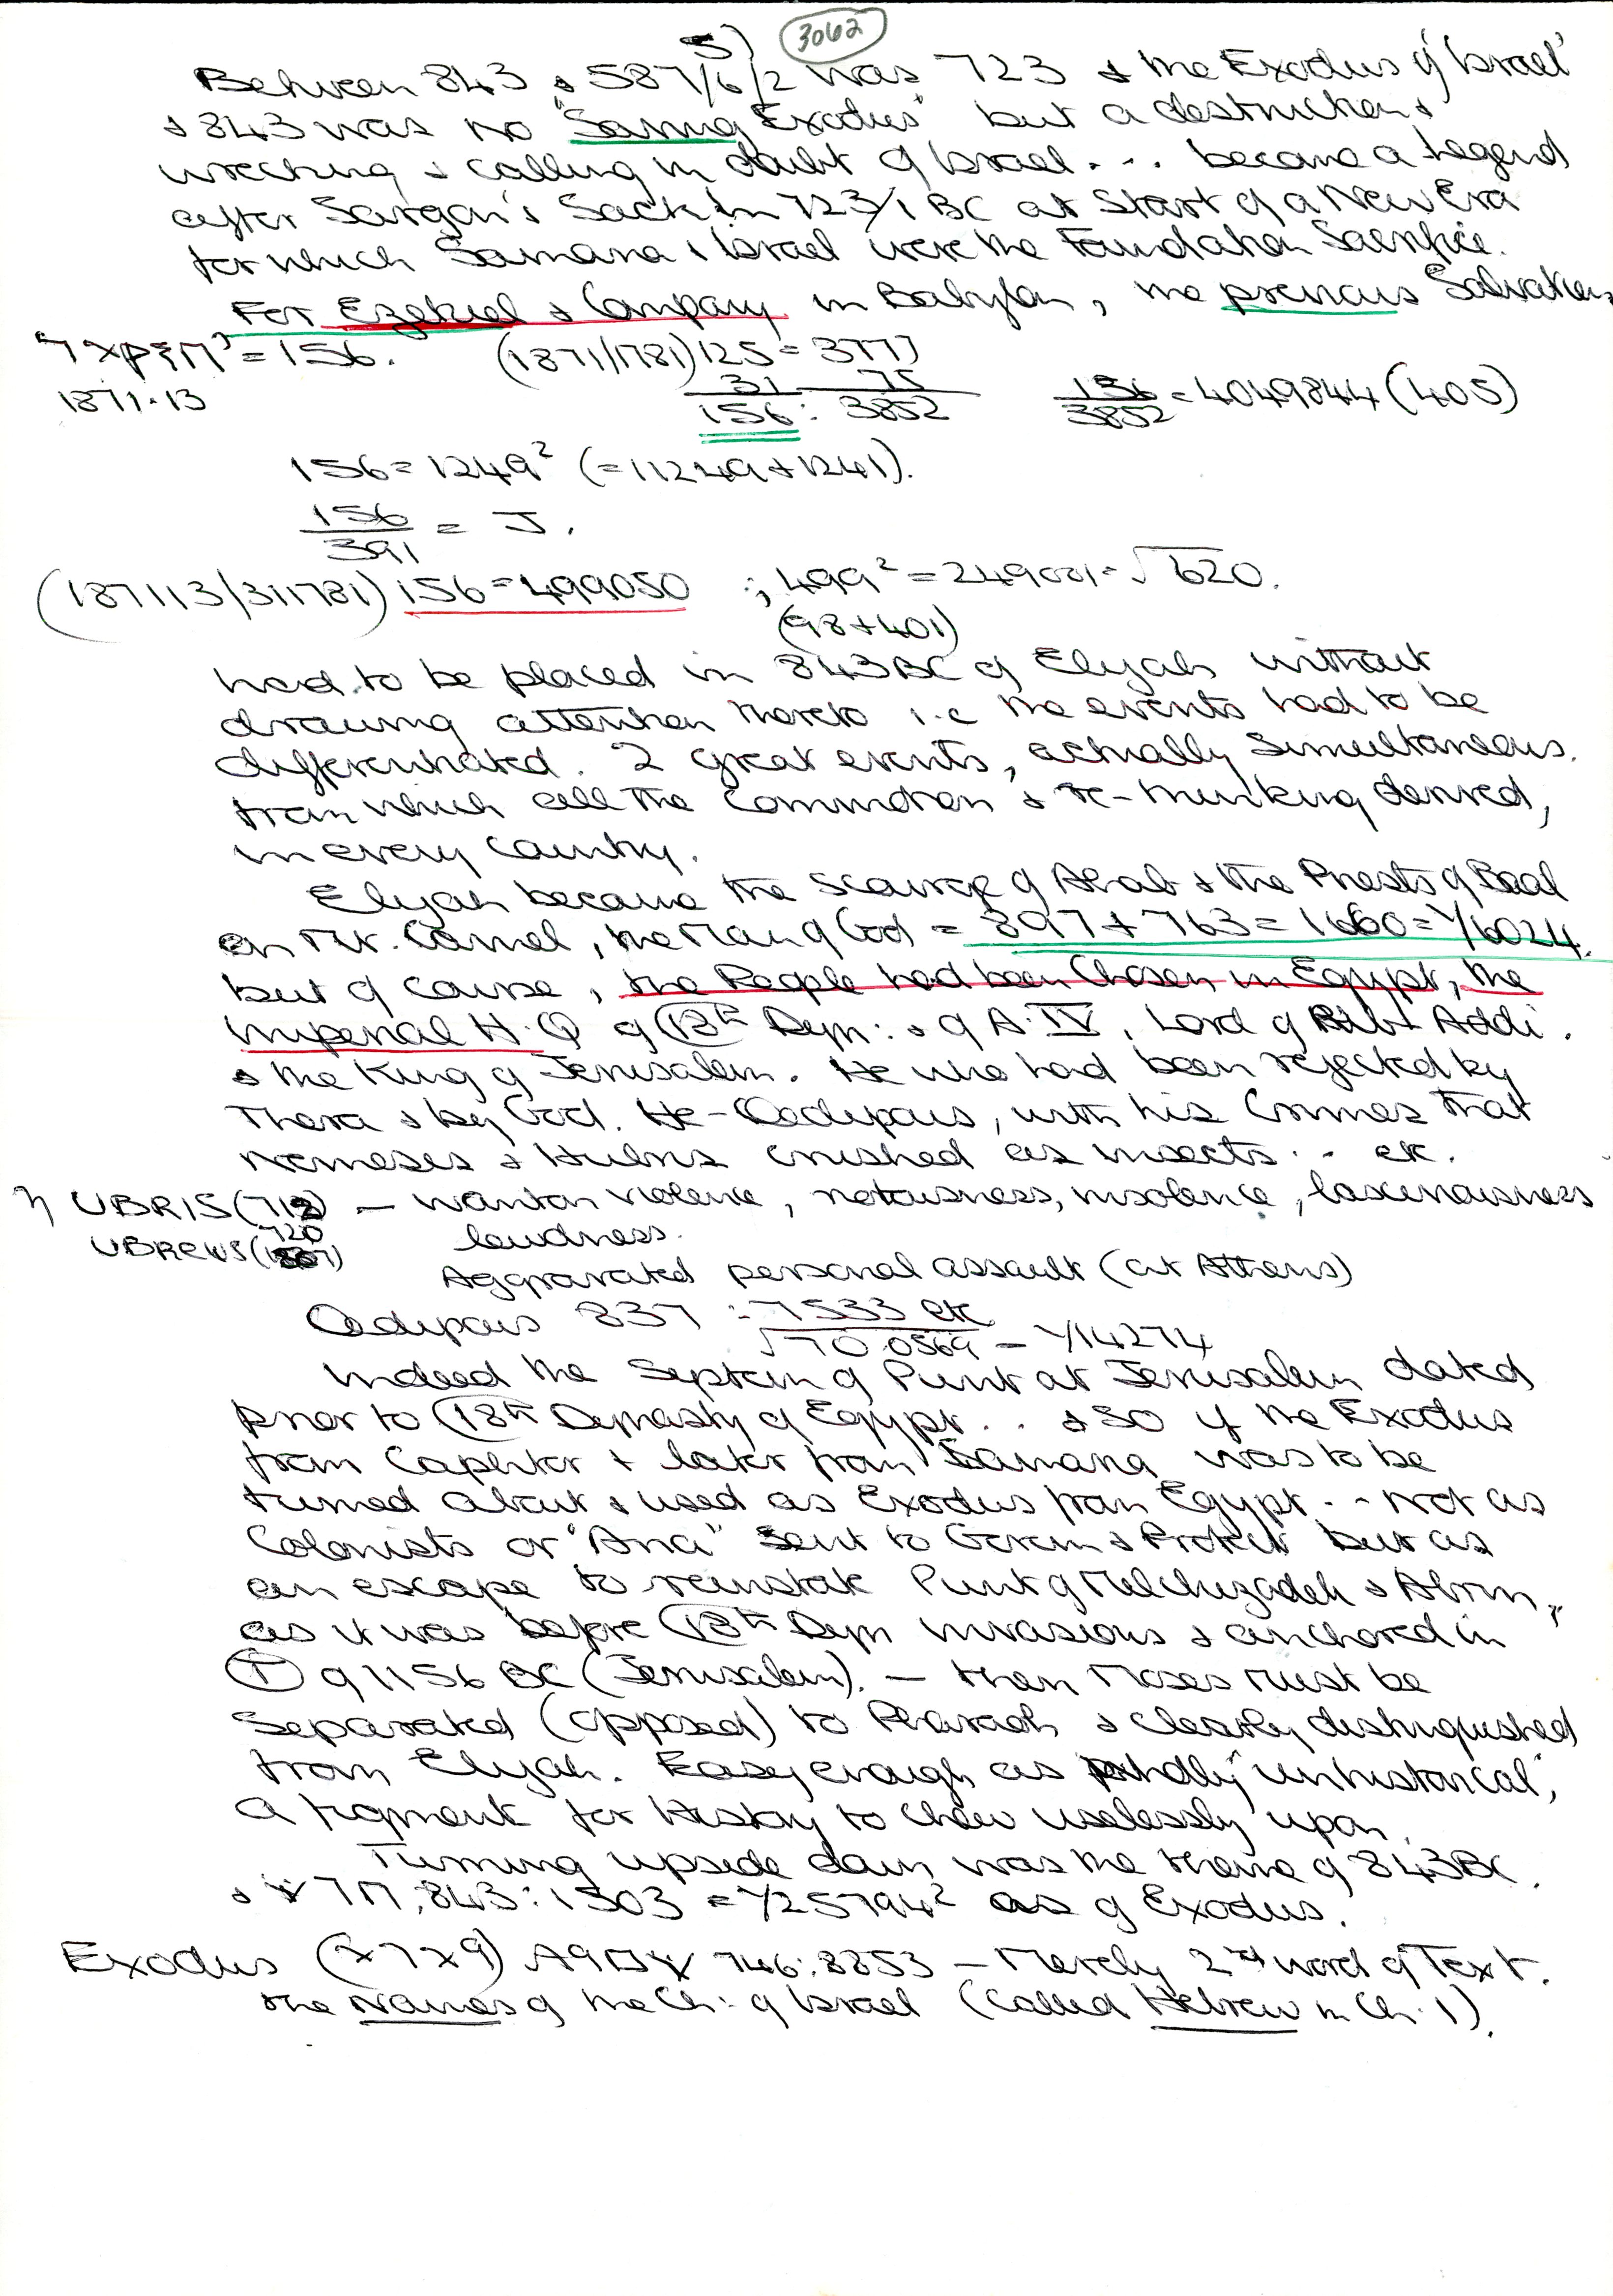 5) 3062
Between 843 & 587/6/2 was 723 & the Exodus of 'Israel'
& 843 was no "Saving Exodus" but a destruction &
wrecking & calling in doubt of Israel... became a legend
after Sargon's Sack in 723/1 BC at Start of a New Era
for which Samaria & Israel were the Foundation Sacrifice.
For Ezekiel & Company in Babylon, the previous Salvation
= 156. (1871/1781) 125 = 3777
1871.13 31 75
156 : 3852 156/3852 = 4049844 (405)
156 = 1249² (= 11249 + 1241).
156/391 = J.
(187113/311781) 156 = 499050 ; 499² = 249001 = √620.
(98+401)
had to be placed in 843BC of Elijah without
drawing attention thereto i.e the events had to be
differentiated. 2 great events, actually Simultaneous.
from which all the Commotion & re-thinking derived,
in every country.
Elijah became the scourge of Ahab & the Priests of Baal
on Mt. Carmel, the Man of God = 897 + 763 = 1660 = 1/6024.
but of course, the People had been Chosen in Egypt, the
Imperial H.Q of 18th Dyn: & of A.IV, Lord of Rib-Addi.
& the King of Jerusalem. He who had been rejected by
Thera & by God. He - Oedipous, with his Crimes that
Nemeses & Hubris crushed as insects... etc.
UBRIS (712) — wanton violence, riotousness, insolence, lasciviousness
720
lewdness.
Aggravated personal assault (at Athens)
Oedipous 837 : 7533 etc
√70.0569 = 1/14274
Indeed the Septein of Punt at Jerusalem dated
prior to 18th Dynasty of Egypt... & so if the Exodus
from Caphtor & later from Samaria was to be
turned about & used as Exodus from Egypt... not as
Colonists or "Arici" sent to Govern & Protect but as
an escape to reinstate Punt of Melchizadek & Abrm,
as it was before 18th Dyn invasions & anchored in
T of 1156 BC (Jerusalem). — then Moses must be
Separated (opposed) to Pharaoh & clearly distinguished
from Elijah. Easy enough as 'unhistorical',
a figment for History to chew uselessly upon.
Turning upside down was the theme of 843BC.
843 : 1303 = 1/25794² as of Exodus.
Exodus 746 : 8853 — Merely 2nd word of Text.
the Names of the Ch: of Israel (called Hebrew in Ch. 1).